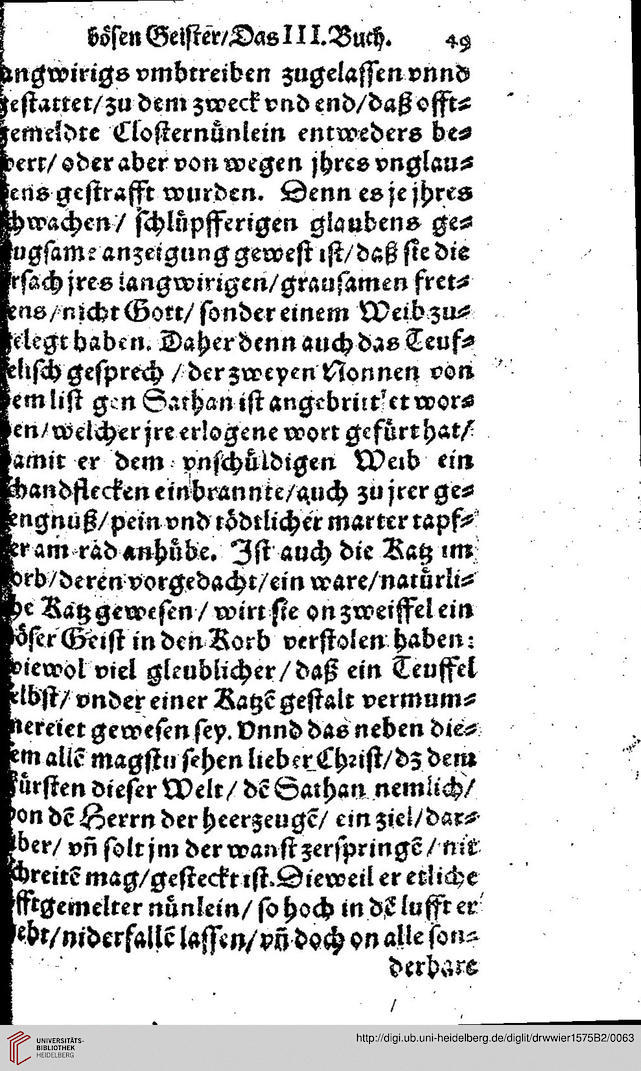 bösen Geister/Das III. Buch. 49
angwirigs vmbtreiben zugelassen vnnd
gestattet/zu dem zweck vnd end/daß offt⸗
gemeldte Closternünlein entweders be⸗
kert/ oder aber von wegen jhres vnglau⸗
bens gestrafft wurden. Denn es je jhres
schwachen/ schlüpfferigen glaubens ge⸗
nugsame anzeigung gewest ist/daß sie die
vrsach jres langwirigen/grausamen fret⸗
tens/nicht Gott/ sonder einem Weib zu⸗
gelegt haben. Daher denn auch das Teuf⸗
elisch gesprech / der zweyen Nonnen von
dem listigen Sathan ist angebrittlet wor⸗
den/welcher jre erlogene wort gefürt hat/
damit er dem vnschüldigen Weib ein
schandflecken einbrannte/auch zu jrer ge⸗
fengnuß/pein vnd tödtlicher marter tapf⸗
er am rad anhübe. Ist auch die Katz im
Korb/deren vorgedacht/ein ware/natürli⸗
che Katz gewesen/ wirt sie on zweiffel ein
böser Geist in den Korb verstolen haben:
wiewol viel gleublicher/ daß ein Teuffel
selbst/ vnder einer Katzē gestalt vermum⸗
mereiet gewesen sey. Vnnd das neben die⸗
sem allē magstu sehen lieber Christ/dz dem
Fürsten dieser Welt/ dē Sathan nemlich/
von dē Herrn der heerzeugē/ ein ziel/dar⸗
über/ vn̄ solt jm der wanst zerspringē/ nit
schreitē mag/gesteckt ist. Dieweil er etliche
offtgemelter nünlein/ so hoch in dē lufft er
hebt/niderfallē lassen/vn̄ doch on alle son⸗
derbare
UNIVERSITÄTS-
BIBLIOTHEK
HEIDELBERG
http://digi.ub.uni-heidelberg.de/diglit/drwwier1575B2/0063